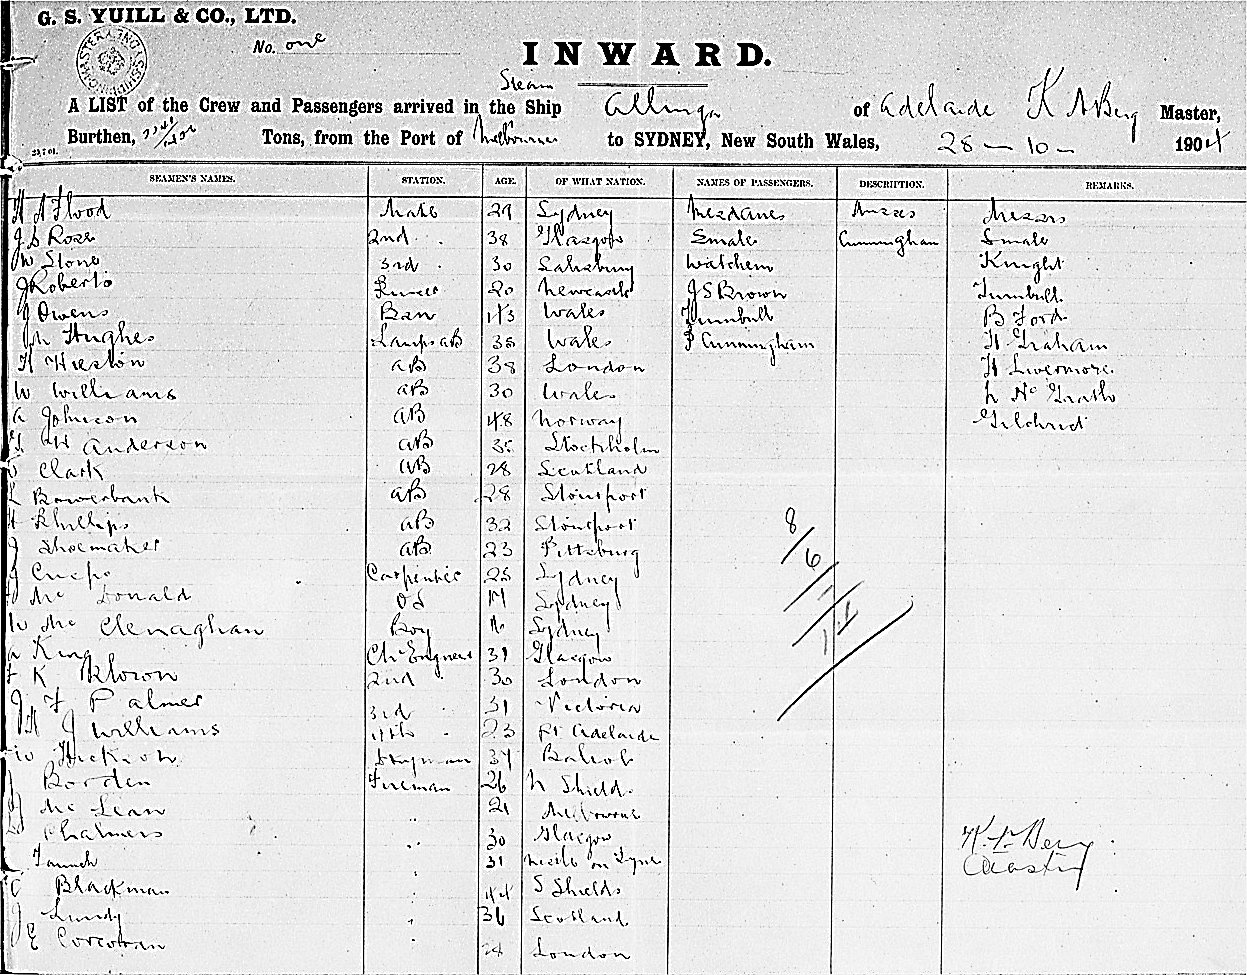 G. S. YUILL & CO., LTD.
No. one
INWARD.
Steam
A LIST of the Crew and Passengers arrived in the Ship Allinga of Adelaide K A Berg Master,
Burthen, Tons, from the Port of Melbourne to SYDNEY, New South Wales, 28 - 10 - 1904
23,7 01.
SEAMEN'S NAMES. STATION. AGE. OF WHAT NATION. NAMES OF PASSENGERS. DESCRIPTION. REMARKS.
H A Flood Mate 29 Sydney Mesdames Misses Messrs
J S Rose 2nd 38 Glasgow Smale Cunningham Smale
W Stone 3rd 30 Salisbury Watchem Knight
J Roberts 20 Newcastle J S Brown Turnbull
J Owens 43 Wales Turnbull B Ford
Hughes Lamps AB 35 Wales Cunningham H Graham
H AB 38 London H Livermore
W Williams AB 30 Wales Mc Grath
A Johnson AB 48 Norway Gilchrist
H Anderson AB 35 Stockholm
Clark AB 28 Scotland
Bowerbank AB 28 Stourport
Phillips AB 32 Stourport
J Shoemaker AB 23 Pittsburg
J Carpenter 25 Sydney
Mc Donald OS 17 Sydney
W Mc Clenaghan Boy 16 Sydney
A King Ch Engineer 39 Glasgow
F K Brown 2nd 30 London
J F Palmer 3rd 31 Victoria
H J Williams 4th 23 Pt Adelaide
W Hickson 37
Borden Fireman 26 N Shields
Mc Lean 21 Melbourne
Chalmers " 30 Glasgow
" 31 on Tyne
Blackman " 44 S Shields
J Lundy " 36 Scotland
E Corcoran " London
8
6
K. A. Berg